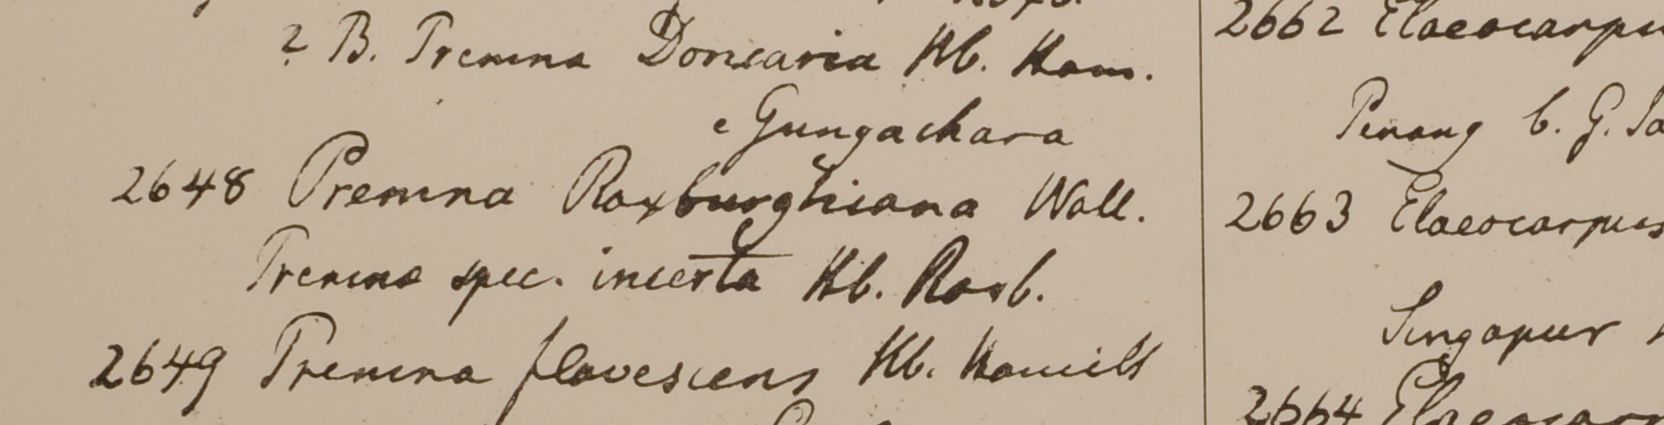 ? B. Premna Doncaria Hb. Ham.
e Gungachara
2648 Premna Roxburghiana Wall.
Premna spec. incerta Hb. Roxb.
2649 Premna flavescens Hb. Hamilt
2662 Elaeocarpu
Penang b. G.
2663 Elaeocarpus
Singapur
2664 Elaeocarp